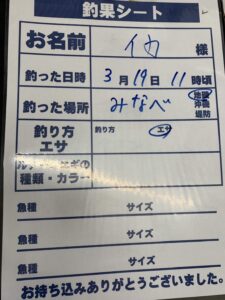 釣果シート
お名前 様
釣った日時 3月19日 11時頃
釣った場所 みなべ 地磯 沖磯 堤防
釣り方 エサ 釣り方 エサ
種類・カラー
魚種 サイズ
魚種 サイズ
魚種 サイズ
お持ち込みありがとうございました。